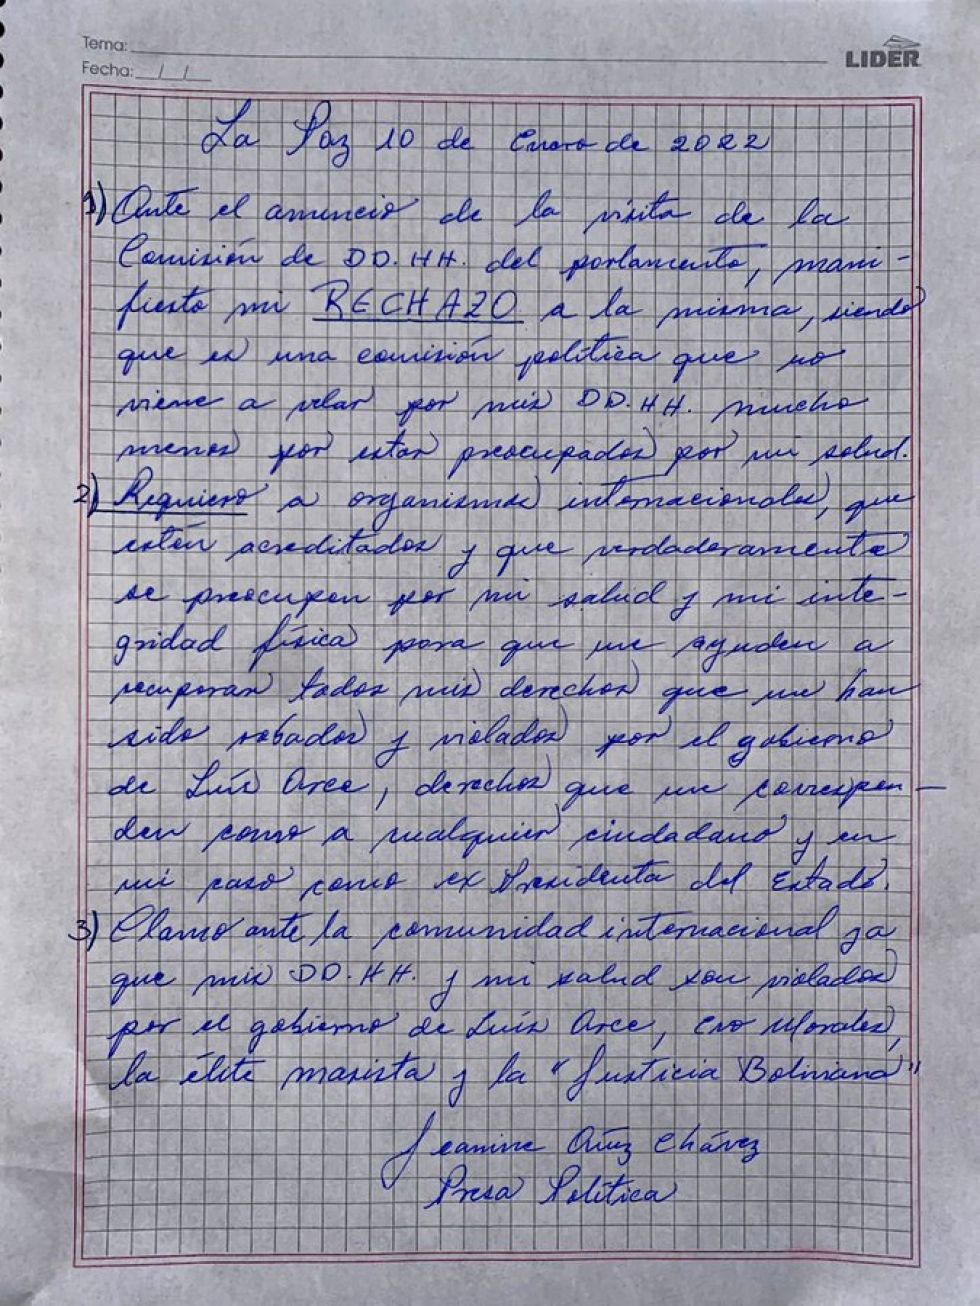 Tema:
LIDER
Fecha: / /
La Paz 10 de Enero de 2022
1) Ante el anuncio de la visita de la
Comisión de DD.HH. del parlamento, mani-
fiesto mi RECHAZO a la misma, siendo
que es una comisión política que no
viene a velar por mis DD.HH. mucho
menos por estar preocupados por mi salud.
2) Requiero a organismos internacionales, que
estén acreditados y que verdaderamente
se preocupen por mi salud y mi inte-
gridad física para que me ayuden a
recuperar todos mis derechos que me han
sido robados y violados por el gobierno
de Luis Arce, derechos que me correspon-
den como a cualquier ciudadano y en
mi caso como ex Presidenta del Estado.
3) Clamo ante la comunidad internacional ya
que mis DD.HH. y mi salud son violados
por el gobierno de Luis Arce, Evo Morales,
la élite masista y la "Justicia Boliviana"
Jeanine Añez Chávez
Presa Política